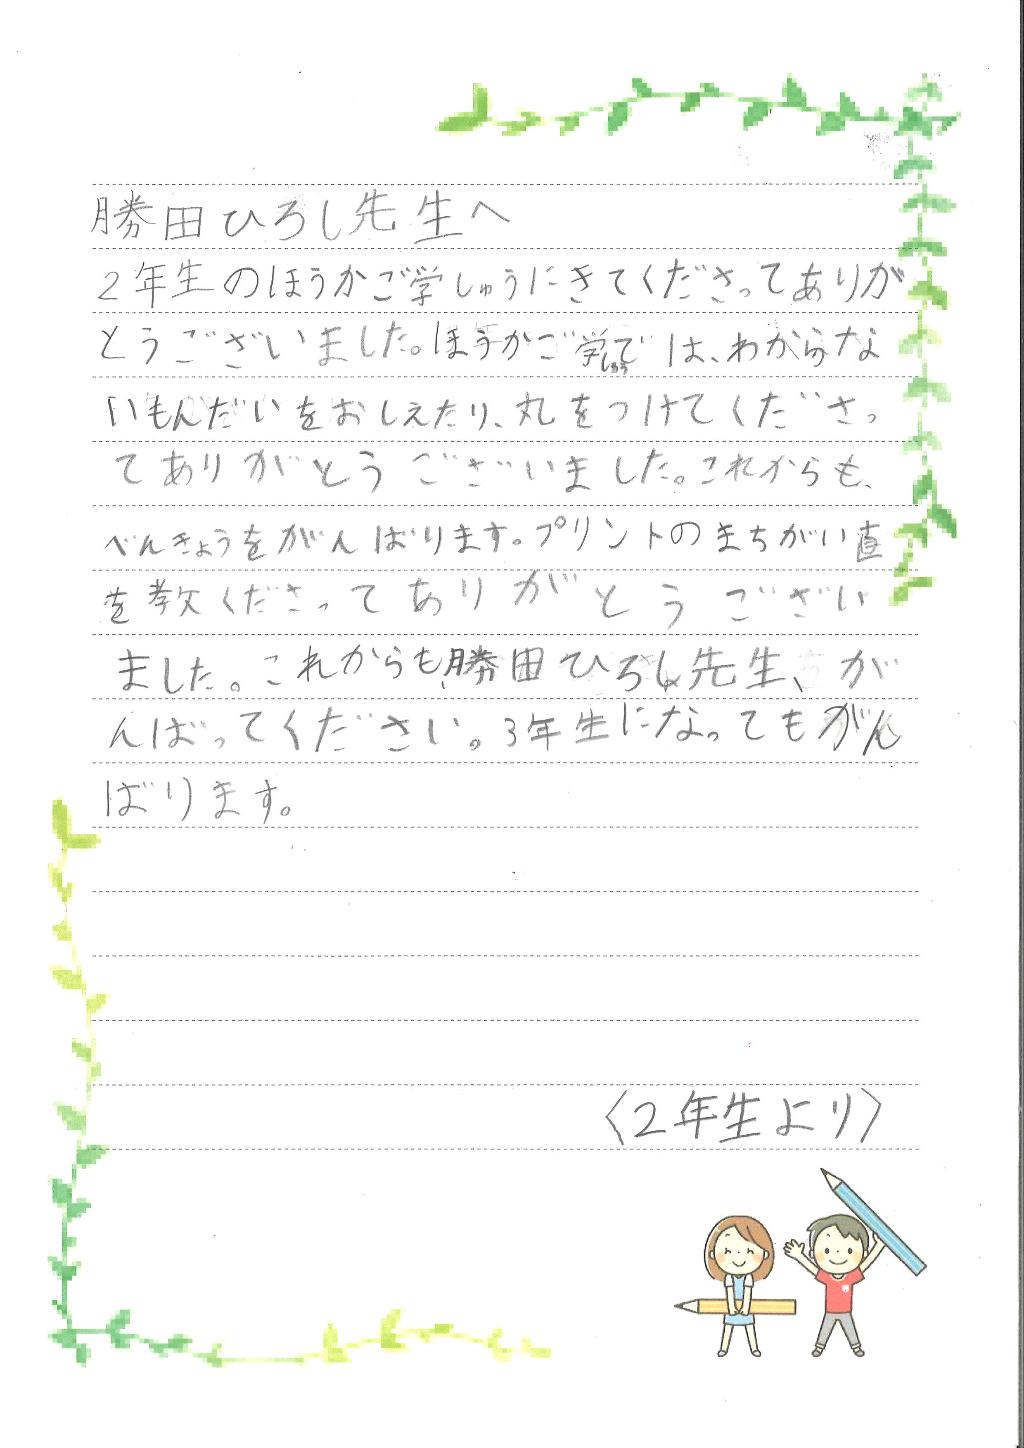 勝田ひろし先生へ
2年生のほうかご学しゅうにきてくださってありが
とうございました。ほうかご学しゅうでは、わからな
いもんだいをおしえたり、丸をつけてくださっ
てありがとうございました。これからも、
べんきょうをがんばります。プリントのまちがい直
を教くださってありがとうござい
ました。これからも、勝田ひろし先生、が
んばってください。3年生になってもがん
ばります。
〈2年生より〉